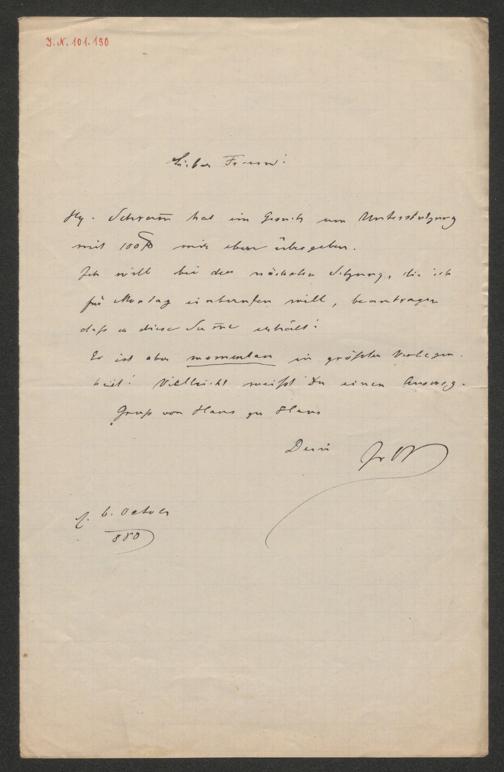 I. N. 101.190
Lieber Freund!
Hr. Schramm hat ein Gesuch um Unterstützung
mit 100 fl mir eben übergeben.
Ich will bei der nächsten Sitzung, die ich
für Montag einberufen will, beantragen
daß er diese Sum̄e erhält!
Er ist aber momentan in größter Verlegen-
heit! Vielleicht weißt Du einen Ausweg.
Gruß von Haus zu Haus
Dein
6. October
880